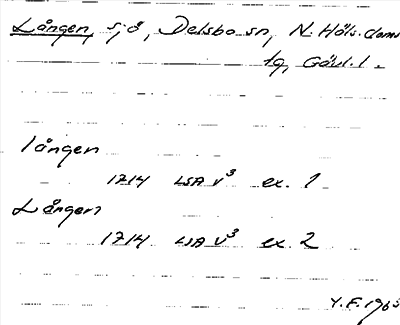 Lången, sjö, Delsbo sn, N. Häls. doms
tg, Gävl. l.
lången
1714 LSA V3 ex. 1
Lången
1714 LSA V3 ex. 2
Y.F. 1965